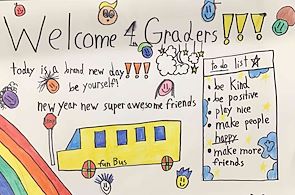 Welcome 4th Graders!!!
today is a brand new day!!!
be yourself!
new year new super awesome friends
fun Bus
to do list
• be Kind
• be positive
• play nice
• make people
happy
• make more
friends